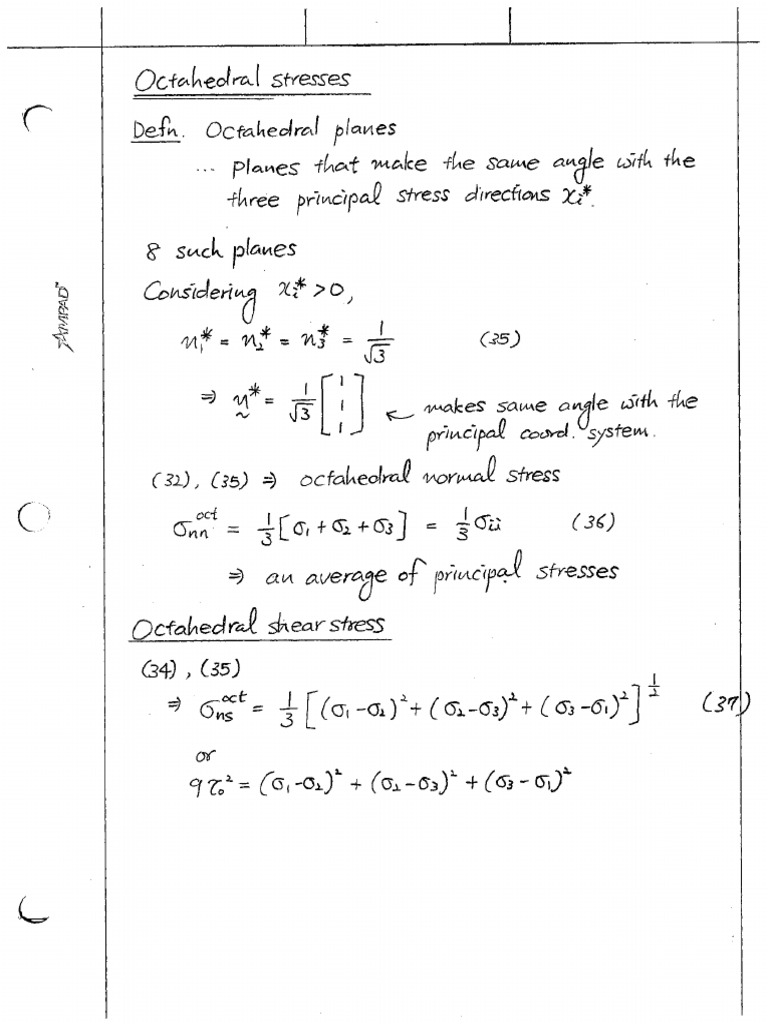 Octahedral stresses
Defn. Octahedral planes
... planes that make the same angle with the
three principal stress directions xᵢ*.
8 such planes
Considering xᵢ* > 0,
n₁* = n₂* = n₃* = 1/√3 (35)
⇒ n* = 1/√3 [1 1 1] ← makes same angle with the
principal coord. system.
(32), (35) ⇒ octahedral normal stress
σₙₙᵒᶜᵗ = 1/3 [σ₁ + σ₂ + σ₃] = 1/3 σᵢᵢ (36)
⇒ an average of principal stresses
Octahedral shear stress
(34), (35)
⇒ σₙₛᵒᶜᵗ = 1/3 [(σ₁ - σ₂)² + (σ₂ - σ₃)² + (σ₃ - σ₁)²]^1/2 (37)
or
9τ₀² = (σ₁ - σ₂)² + (σ₂ - σ₃)² + (σ₃ - σ₁)²
AMPAD